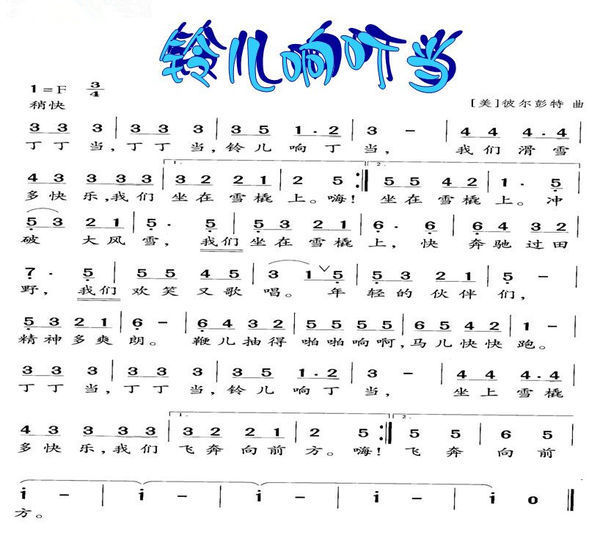 铃儿响叮当
1=F 3/4
稍快
[美]彼尔彭特 曲
3 3 3 | 3 3 3 | 3 5 1·2 | 3 - | 4 4 4·4 |
丁丁当,丁丁当,铃儿响丁当, 我们滑雪
1. 2.
4 3 3 3 3 | 3 2 2 1 | 2 5 :‖ 5 5 4 2 | 1· 5 |
多快乐,我们 坐在雪橇上。嗨! 坐在雪橇上。冲
5 3 2 1 | 5· 5 | 5 3 2 1 | 6· 6 | 6 4 3 2 |
破 大风雪, 我们坐在雪橇上, 快 奔驰过田
7· 5 | 5 5 4 5 | 3 1 ∨ 5 | 5 3 2 1 | 5 - |
野, 我们欢笑又歌唱。 年轻的伙伴们,
5 3 2 1 | 6 - | 6 4 3 2 | 5 5 5 5 | 6 5 4 2 | 1 - |
精神多爽朗。 鞭儿抽得啪啪响啊,马儿快快跑。
3 3 3 | 3 3 3 | 3 5 1·2 | 3 - | 4 4 4·4 |
丁丁当,丁丁当,铃儿响丁当, 坐上雪橇
1. 2.
4 3 3 3 3 | 3 2 2 1 | 2 5 :‖ 5 5 | 6 5 |
多快乐,我们 飞奔向前方。嗨! 飞奔 向前
i - | i - | i - | i - | i 0 ‖
方。